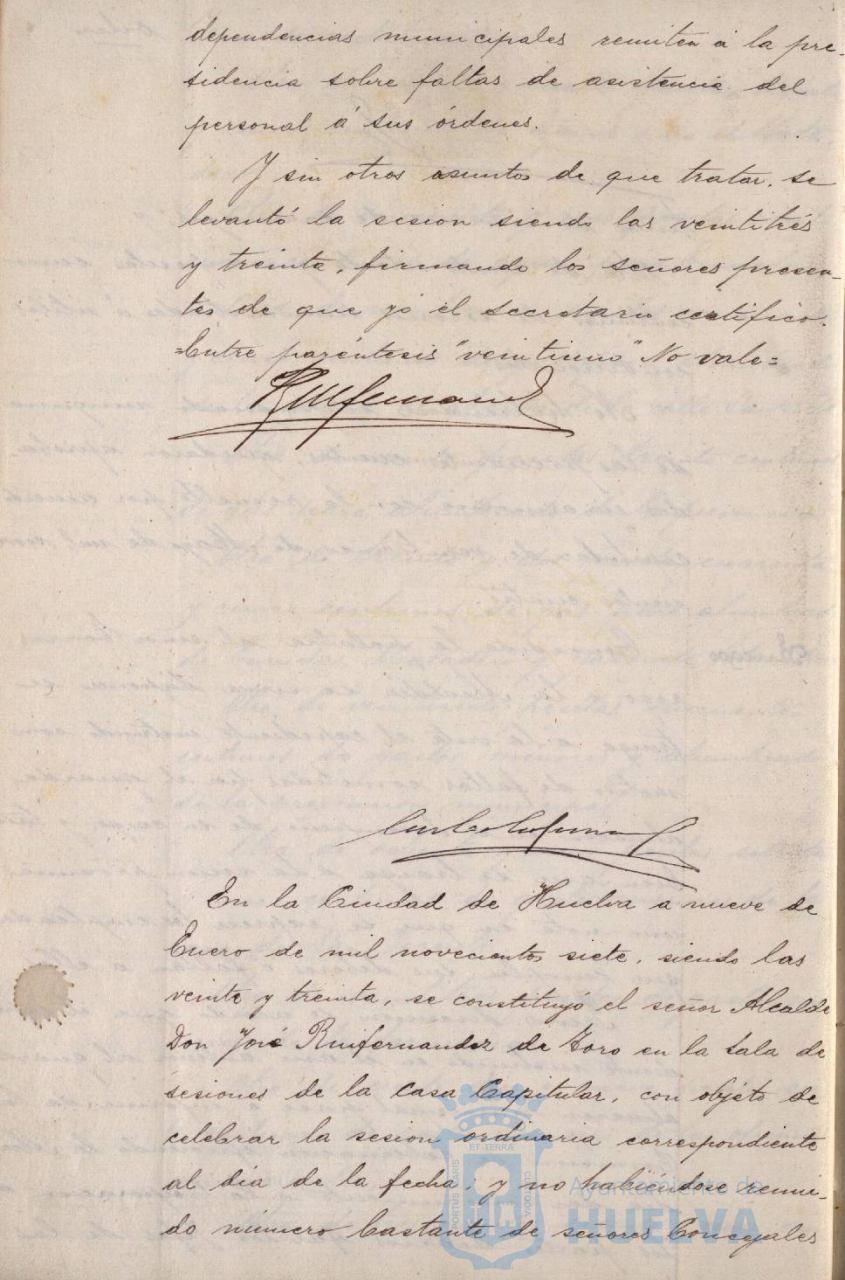 dependencias municipales remiten á la pre-
sidencia sobre faltas de asistencia del
personal á sus órdenes.
Y sin otros asuntos de que tratar, se
levantó la sesion siendo las veintitrés
y treinta, firmando los señores presen-
tes de que yó el secretario certifico.
=Entre paréntesis "veintiuno" No vale=
En la Ciudad de Huelva a nueve de
Enero de mil novecientos siete, siendo las
veinte y treinta, se constituyó el señor Alcalde
Don José Ruifernandez de Toro en la Sala de
sesiones de la Casa Capitular, con objéto de
celebrar la sesion ordinaria correspondiente
al dia de la fecha; y no habiéndose reuni-
do número bastante de señores Concejales
PORTUS MARIS
ET TERRÆ
CUSTODIA
Ayuntamiento de
HUELVA